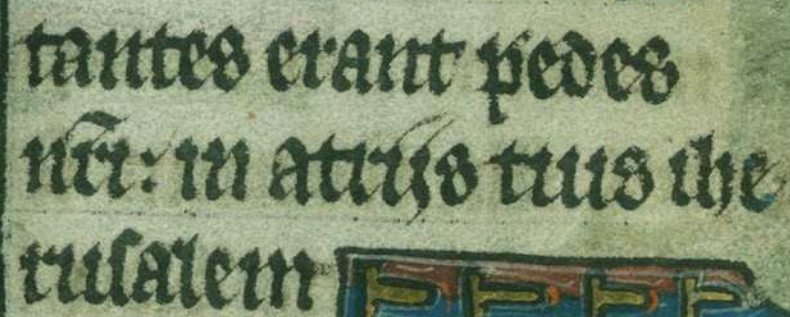 tantes erant pedes
nr̃i: in atrijs tuis ihe
rusalem